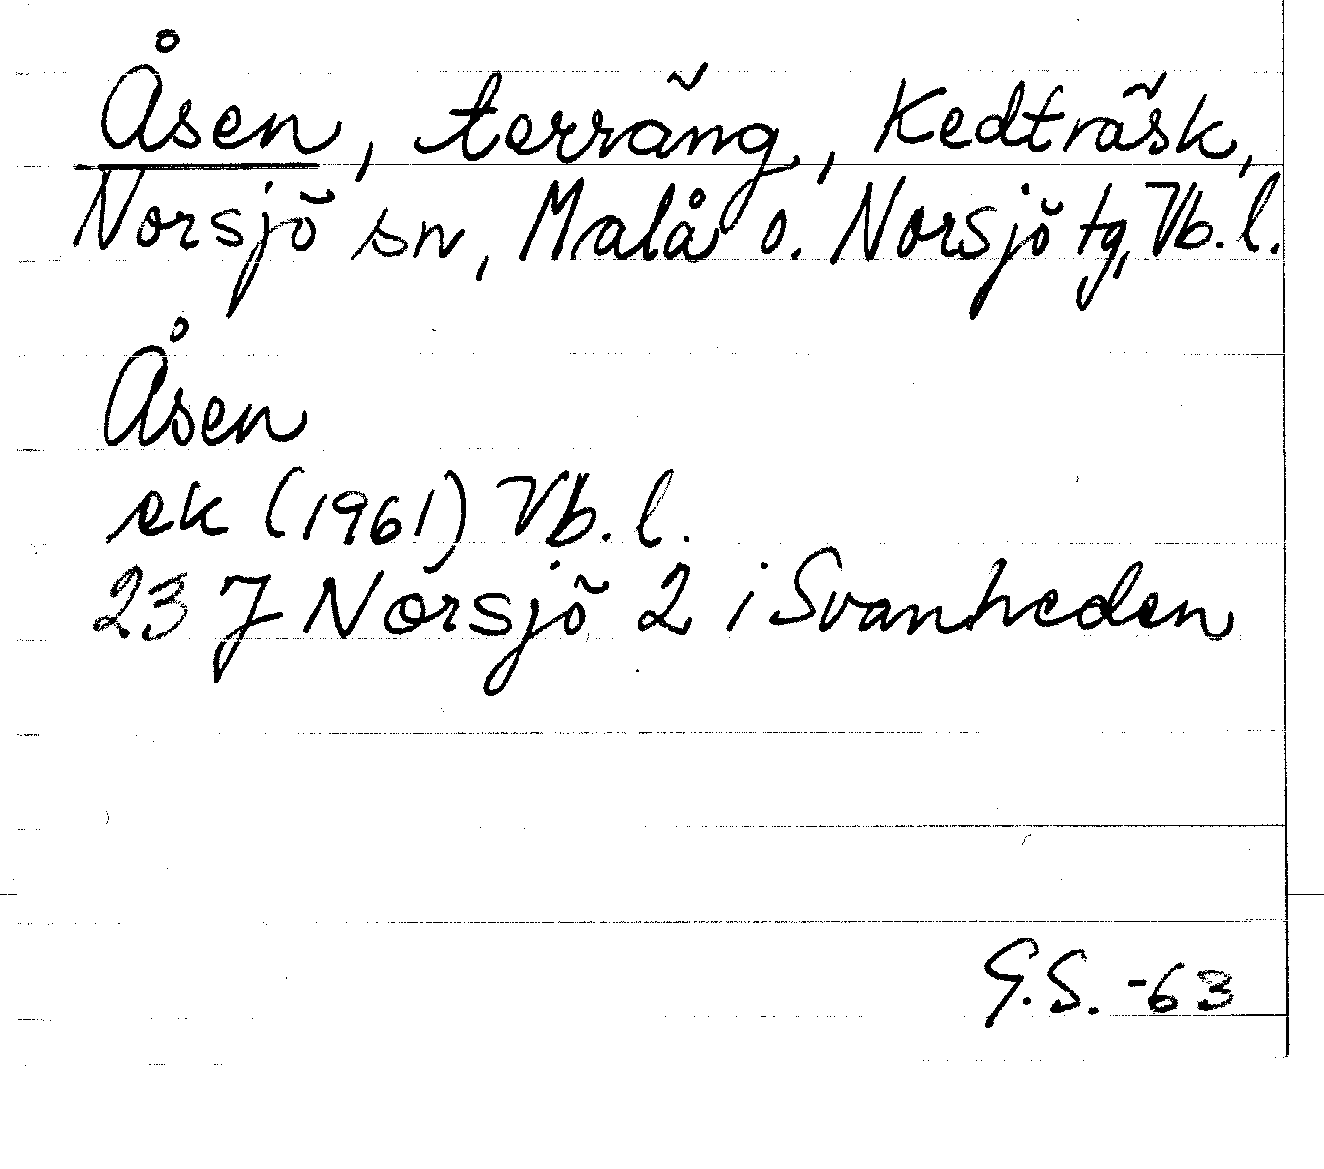 Åsen, terräng, Kedträsk,
Norsjö sn, Malå o. Norsjö tg, Vb. l.
Åsen
ek (1961) Vb. l.
23 J Norsjö 2 i Svanheden
G.S. -63